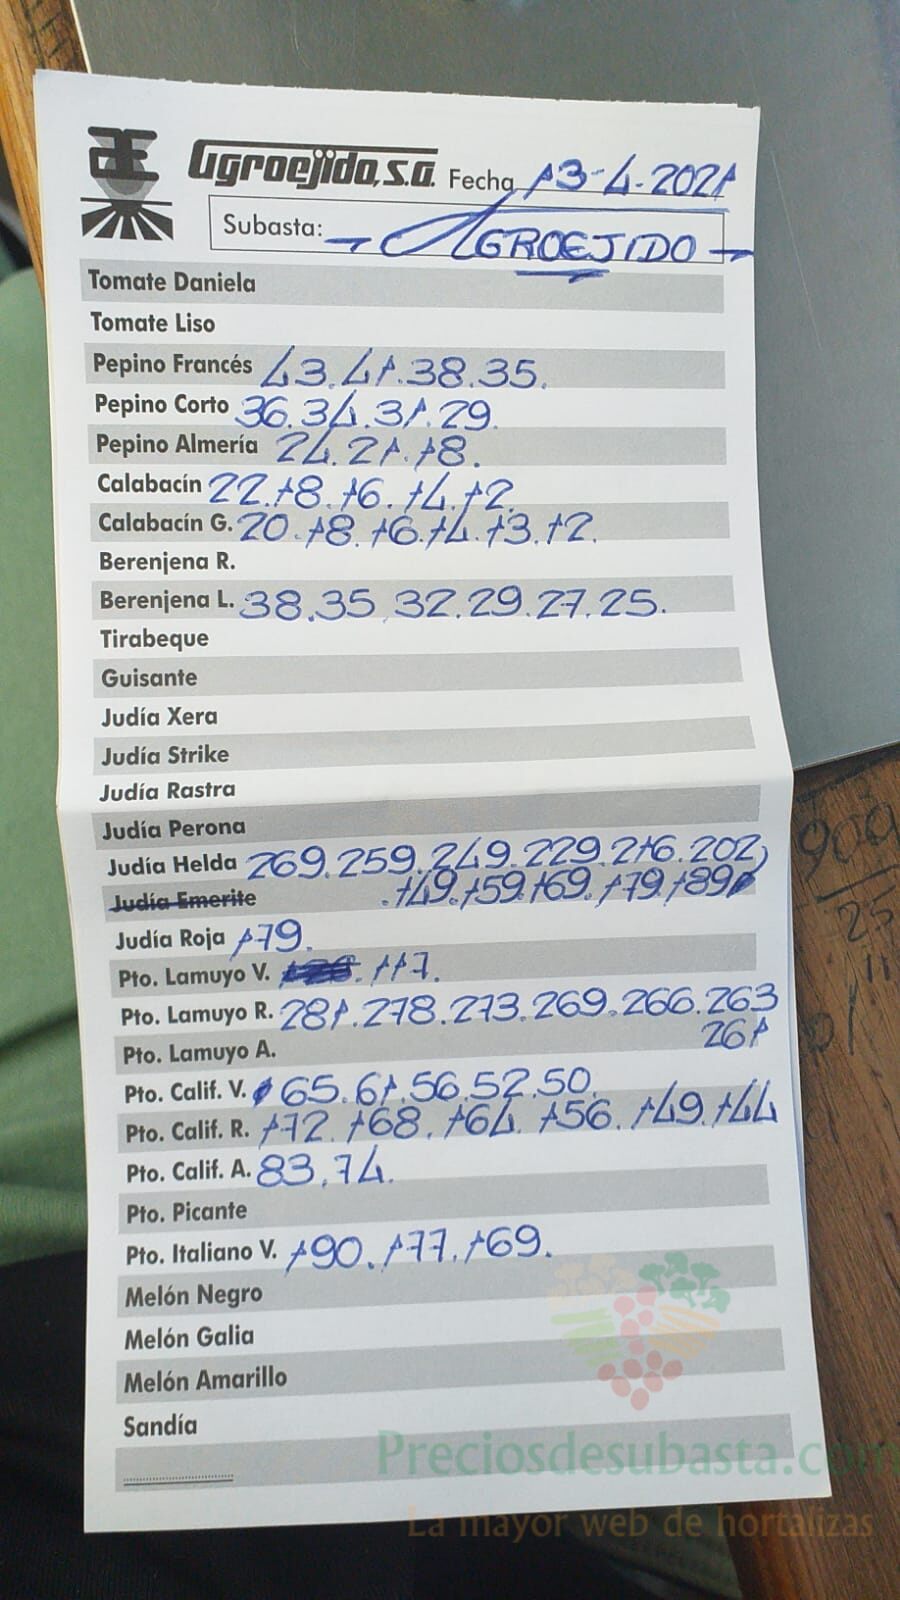 Agroejido, S.A. Fecha 13-4-2021
Subasta: - AGROEJIDO -
Tomate Daniela
Tomate Liso
Pepino Francés 43.41.38.35.
Pepino Corto 36.34.31.29.
Pepino Almería 24.21.18.
Calabacín 22.18.16.14.12.
Calabacín G. 20.18.16.14.13.12.
Berenjena R.
Berenjena L. 38.35.32.29.27.25.
Tirabeque
Guisante
Judía Xera
Judía Strike
Judía Rastra
Judía Perona
Judía Helda 269.259.249.229.216.202)
Judía Emerite .149.159.169.179.189
Judía Roja 179.
Pto. Lamuyo V. 117.
Pto. Lamuyo R. 281.278.273.269.266.263
261
Pto. Lamuyo A.
Pto. Calif. V. 65.61.56.52.50.
Pto. Calif. R. 172.168.164.156.149.144
Pto. Calif. A. 83.74.
Pto. Picante
Pto. Italiano V. 190.177.169.
Melón Negro
Melón Galia
Melón Amarillo
Sandía
Preciosdesubasta.com
La mayor web de hortalizas
909
25